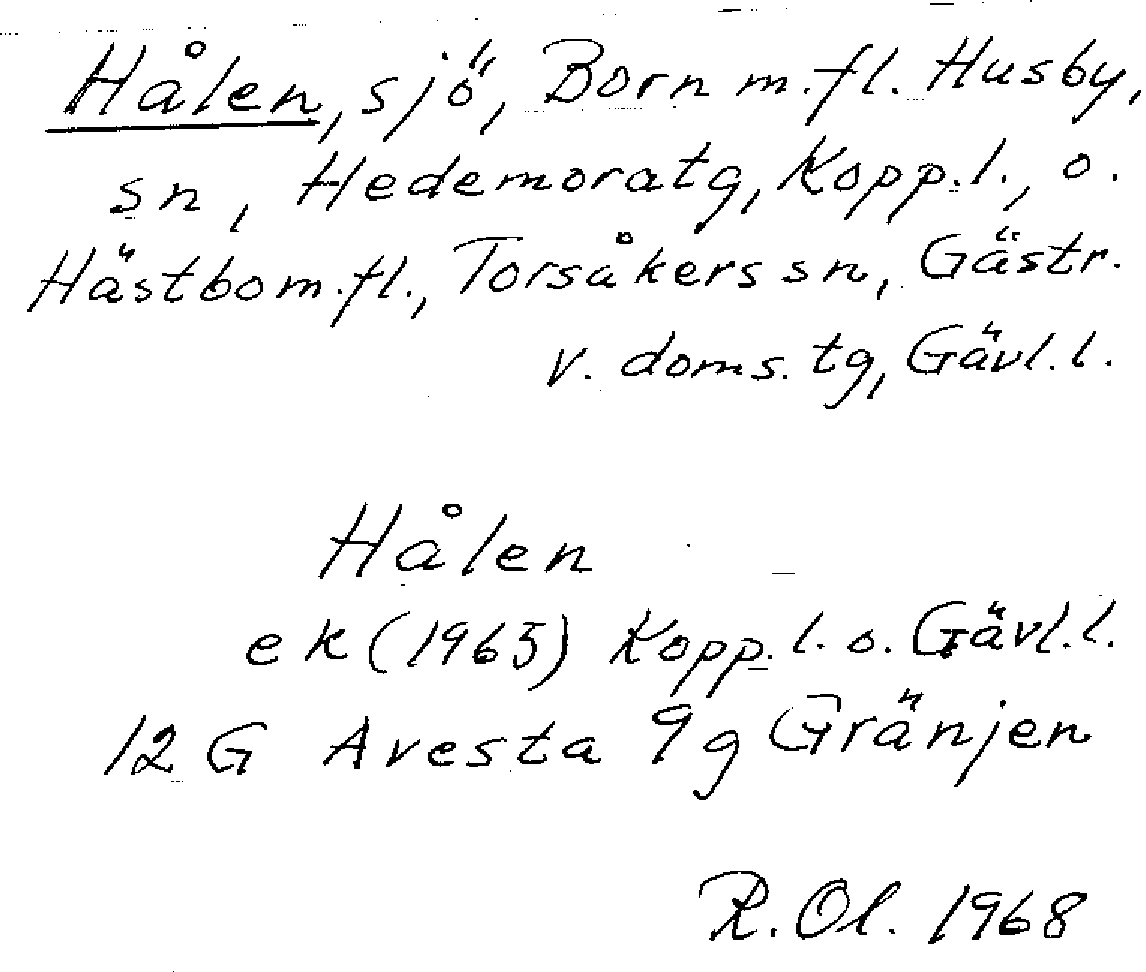 Hålen, sjö, Born m.fl. Husby,
sn, Hedemora tg, Kopp. l., o.
Hästbo m.fl., Torsåkers sn, Gästr.
v. doms. tg, Gävl. l.
Hålen
ek (1965) Kopp. l. o. Gävl. l.
12 G Avesta 9 g Gränjen
R. Ol. 1968